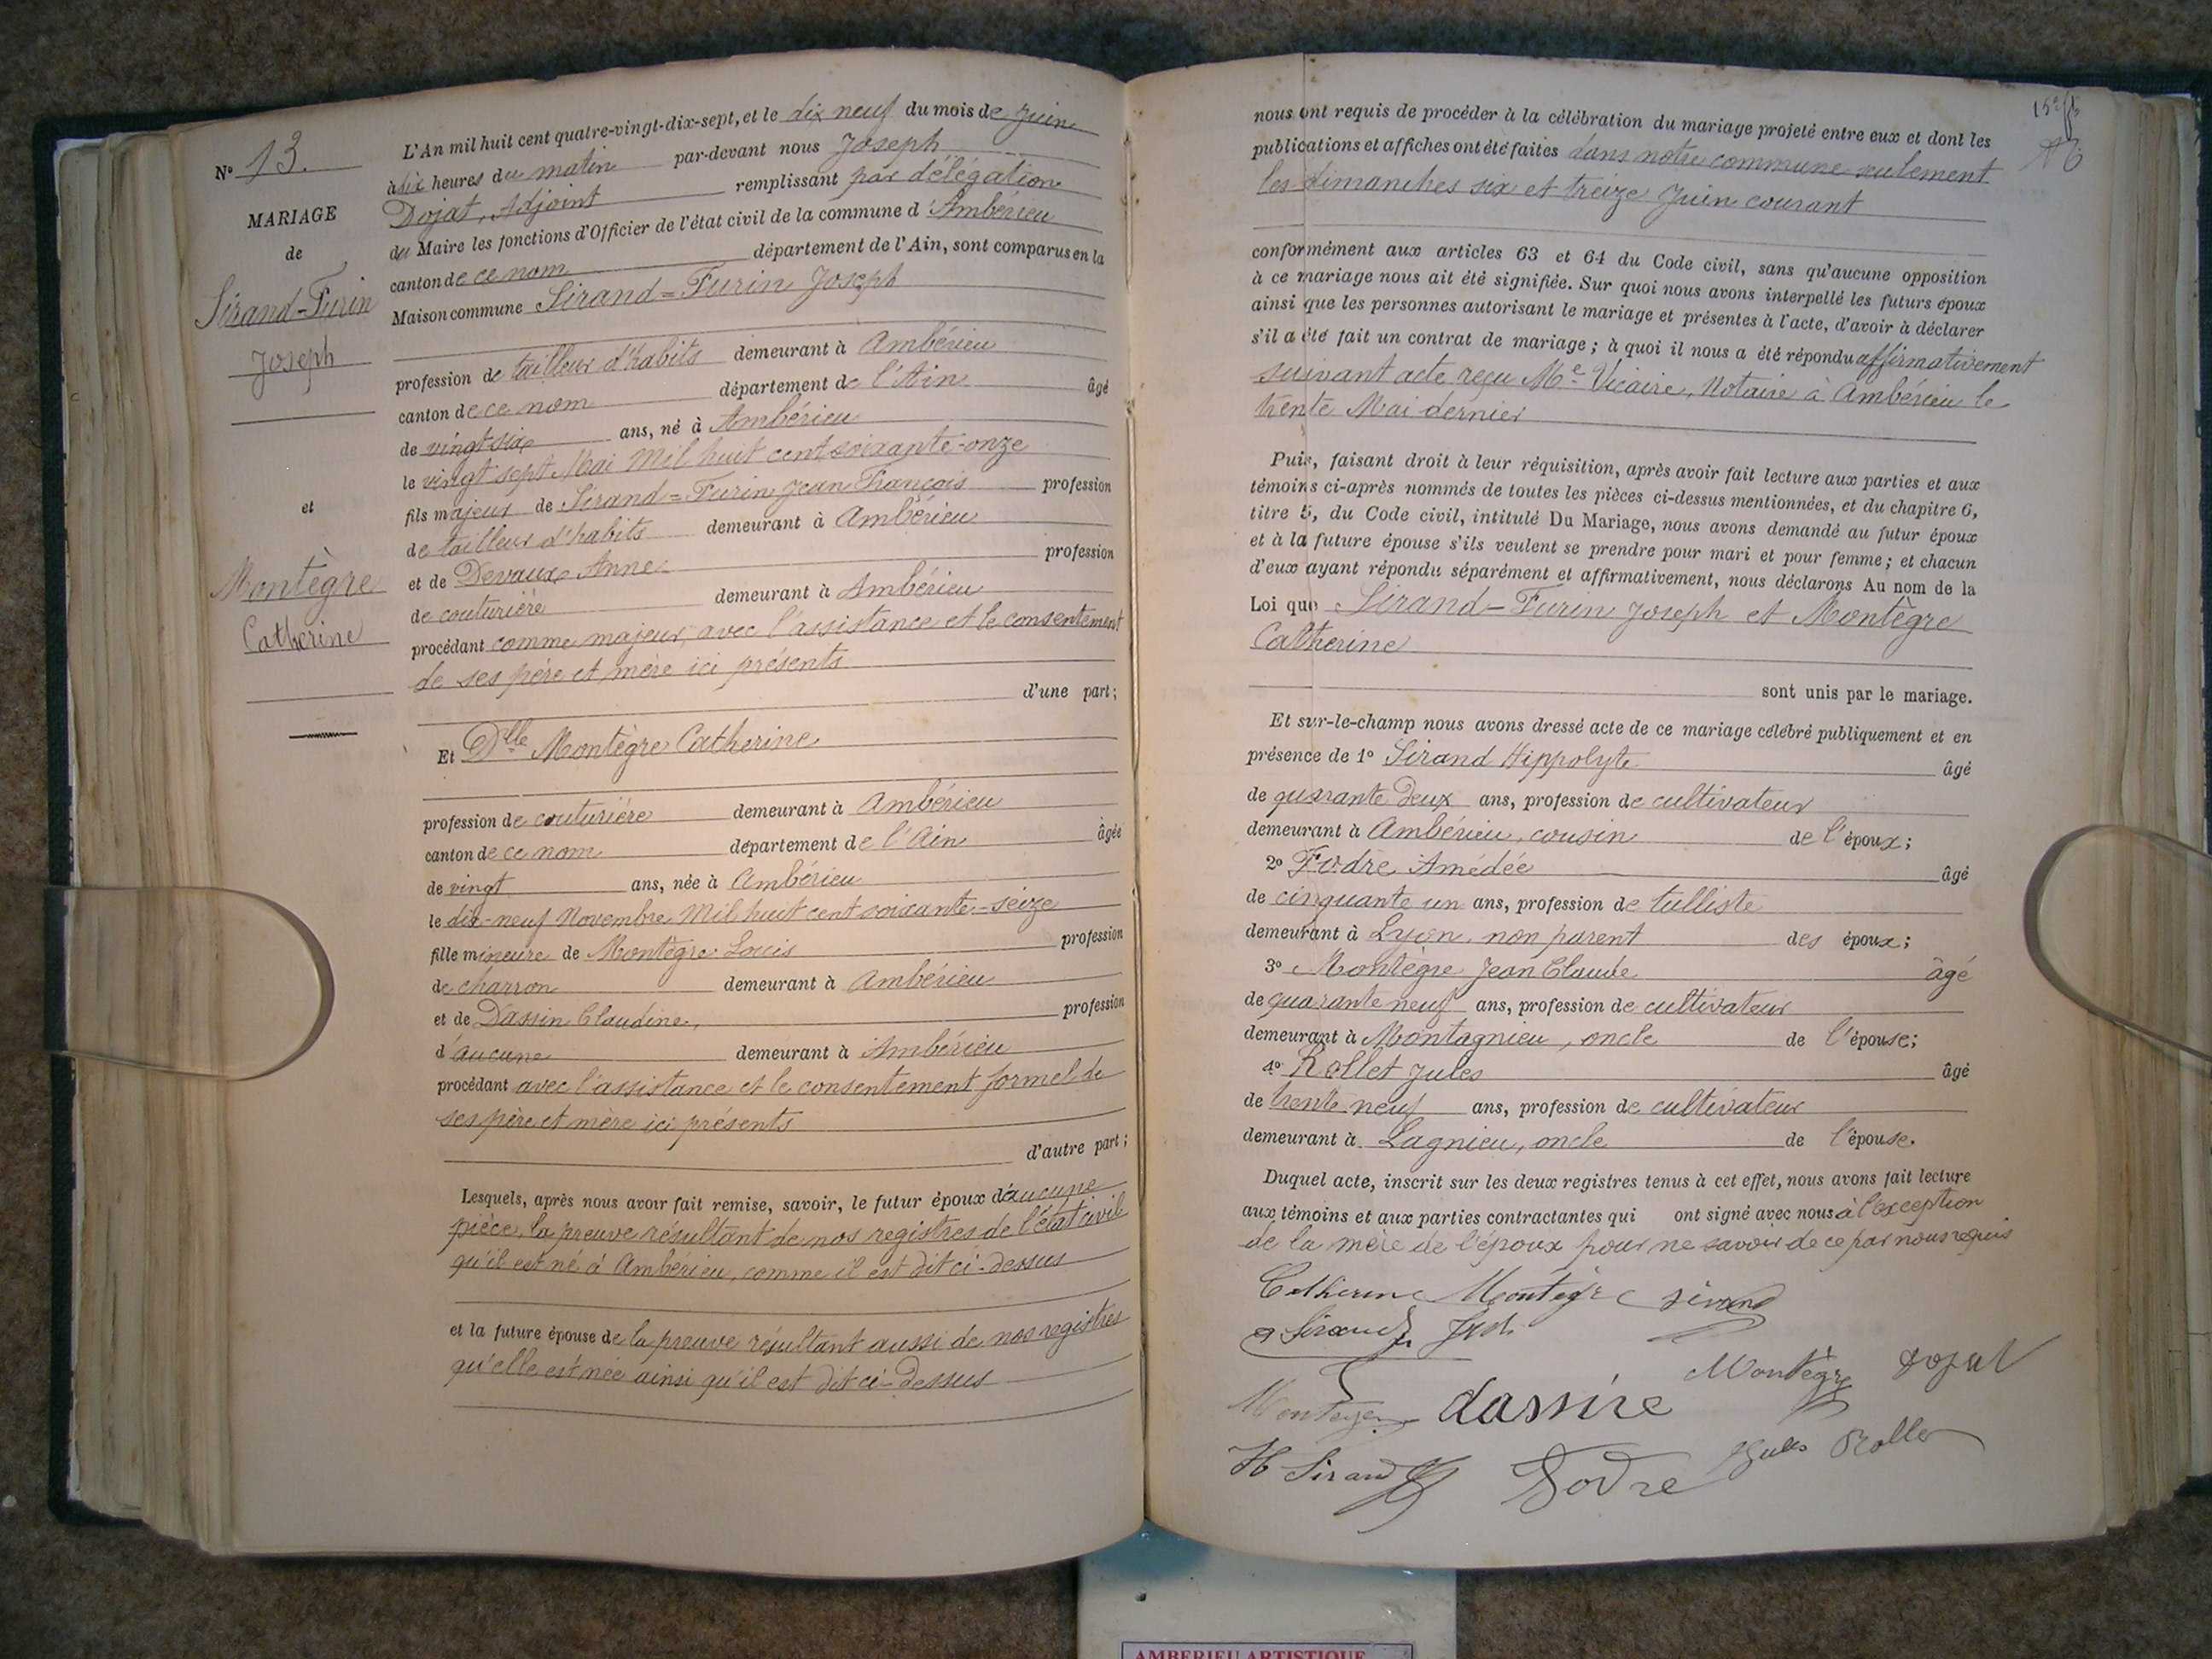 N° 13.
MARIAGE
de
Sirand-Furin
Joseph
et
Montègre
Catherine
L'An mil huit cent quatre-vingt-dix-sept, et le dix neuf du mois de Juin
à dix heures du matin par-devant nous Joseph
Dojat, Adjoint remplissant par délégation
du Maire les fonctions d'Officier de l'état civil de la commune d'Ambérieu
canton de ce nom département de l'Ain, sont comparus en la
Maison commune Sirand=Furin Joseph
profession de tailleur d'habits demeurant à Ambérieu
canton de ce nom département de l'Ain âgé
de vingt-six ans, né à Ambérieu
le vingt sept Mai Mil huit cent soixante-onze
fils majeur de Sirand=Furin Jean François profession
de tailleur d'habits demeurant à Ambérieu
et de Devaux Anne profession
de couturière demeurant à Ambérieu
procédant comme majeur, avec l'assistance et le consentement
de ses père et mère ici présents
d'une part;
Et Dlle Montègre Catherine
profession de couturière demeurant à Ambérieu
canton de ce nom département de l'Ain âgée
de vingt ans, née à Ambérieu
le dix-neuf Novembre Mil huit cent soixante-seize
fille mineure de Montègre Louis profession
de charron demeurant à Ambérieu
et de Dassin Claudine, profession
d'aucune demeurant à Ambérieu
procédant avec l'assistance et le consentement formel de
ses père et mère ici présents
d'autre part;
Lesquels, après nous avoir fait remise, savoir, le futur époux d'aucune
pièce, la preuve résultant de nos registres de l'état civil
qu'il est né à Ambérieu, comme il est dit ci-dessus
et la future épouse de la preuve résultant aussi de nos registres
qu'elle est née ainsi qu'il est dit ci-dessus
nous ont requis de procéder à la célébration du mariage projeté entre eux et dont les
publications et affiches ont été faites dans notre commune seulement
les dimanches six et treize Juin courant
conformément aux articles 63 et 64 du Code civil, sans qu'aucune opposition
à ce mariage nous ait été signifiée. Sur quoi nous avons interpellé les futurs époux
ainsi que les personnes autorisant le mariage et présentes à l'acte, d'avoir à déclarer
s'il a été fait un contrat de mariage; à quoi il nous a été répondu affirmativement
suivant acte reçu Me Vicaire, Notaire à Ambérieu le
trente Mai dernier
Puis, faisant droit à leur réquisition, après avoir fait lecture aux parties et aux
témoins ci-après nommés de toutes les pièces ci-dessus mentionnées, et du chapitre 6,
titre 5, du Code civil, intitulé Du Mariage, nous avons demandé au futur époux
et à la future épouse s'ils veulent se prendre pour mari et pour femme; et chacun
d'eux ayant répondu séparément et affirmativement, nous déclarons Au nom de la
Loi que Sirand-Furin Joseph et Montègre
Catherine
sont unis par le mariage.
Et sur-le-champ nous avons dressé acte de ce mariage célébré publiquement et en
présence de 1° Sirand Hippolyte âgé
de quarante deux ans, profession de cultivateur
demeurant à Ambérieu, cousin de l'époux;
2° Fodre Amédée âgé
de cinquante un ans, profession de tulliste
demeurant à Lyon, non parent des époux;
3° Montègre Jean Claude âgé
de quarante neuf ans, profession de cultivateur
demeurant à Montagnieu, oncle de l'épouse;
4° Rollet Jules âgé
de trente neuf ans, profession de cultivateur
demeurant à Lagnieu, oncle de l'épouse.
Duquel acte, inscrit sur les deux registres tenus à cet effet, nous avons fait lecture
aux témoins et aux parties contractantes qui ont signé avec nous à l'exception
de la mère de l'époux pour ne savoir de ce par nous requis
Catherine Montègre Sirand
Sirand
Montègre Dojat
dassin
H Sirand Fodre Jules Rollet
AMBERIEU ARTISTIQUE